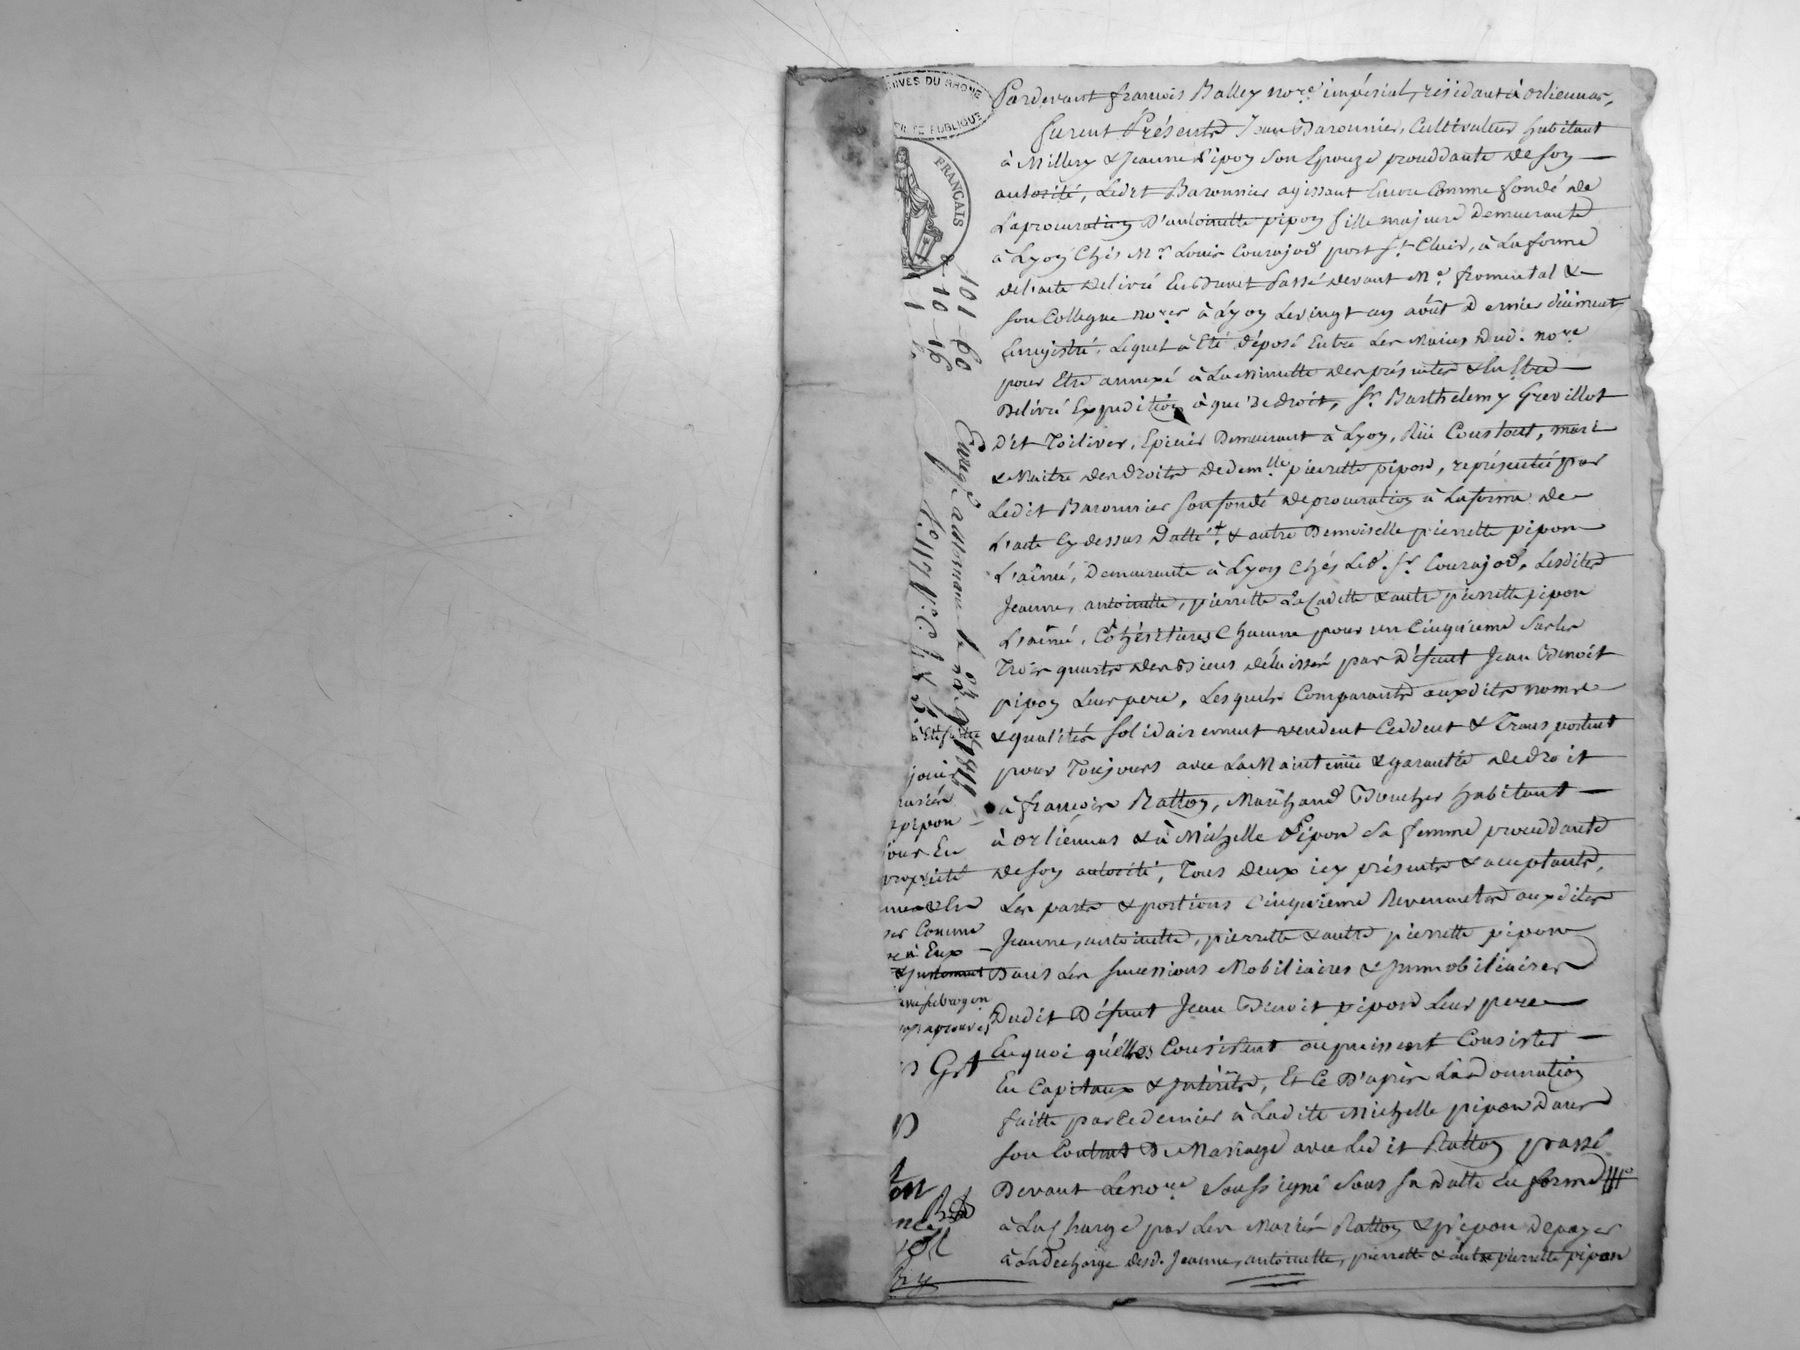 Pardevant françois Balley no.re impérial, résidant à orliennas,
furent Présents Jean Baronnier, Cultivateur habitant
à Millery & Jeanne Pipon Son Epouze proceddante de Son
autorité, Ledit Baronnier agissant Encore Comme fondé de
La procuration D'antoinette pipon fille majeure Demeurante
à Lyon Chés Mr. Louis Courajod port St. Clair, à La forme
de l'acte Delivré En Brevet Passé devant Me. fromental &
son Collegue no.res à Lyon Le vingt un août Dernier düiment
Enregistré, Lequel à Eté déposé Entre Les Mains Dud. no.re
pour Etre annexé à La Minutte des présentes & En Etre
Delivré Expedition à qui de droit, Sr. Barthelemy Grevillot
Dit Toiliver, Epicier Demeurant à Lyon, Rüe Coustout, mari
& Maitre des droits de dem.lle pierrette pipon, représenté par
Ledit Baronnier Son fondé de procuration à La forme de
L'acte Cy dessus Datté, & autre Demoiselle pierrette pipon
L'ainée, Demeurante à Lyon Chés Led. Sr. Courajod, Lesdites
Jeanne, antoinette, pierrette La Cadette & autre pierrette pipon
L'ainée, Cohéritières Chacune pour un Cinquieme Sur les
Trois quarts des Biens délaissés par Défunt Jean Benoit
pipon Leur pere, Lesquels Comparants auxdits noms
& qualités Solidairement vendent Ceddent & Transportent
pour Toujours avec La Maintenüe & garantie de droit
à françois Ratton, Marchand Boucher habitant
à orliénnas & à Michelle Pipon Sa femme proceddante
de Son autorité, Tous deux icy présents & acceptants,
Les parts & portions Cinquieme Revenantes auxdites
Jeanne, antoinette, pierrette & autre pierrette pipon
Dans Les Successions Mobiliaires & Immobiliaires
Dudit Défunt Jean Benoit pipon Leur pere
En quoi qu'elles Consistent ou puissent Consister
En Capitaux & Intérêts, Et Ce D'après La donnation
faitte par Ce dernier à Ladite Michelle pipon Dans
Son Contrat De Mariage avec Ledit Ratton passé
Devant Le no.re Soussigné Sous Sa Datte En forme
à La Charge par Les Mariés Ratton & pipon De payer
à La Decharge desd. Jeanne, antoinette, pierrette & autre pierrette pipon
ARCHIVES DU RHONE
PUBLIQUE
FRANÇAIS
101-60
10-16
jouir
pipon
jour En
propriété
Comme
à Eux